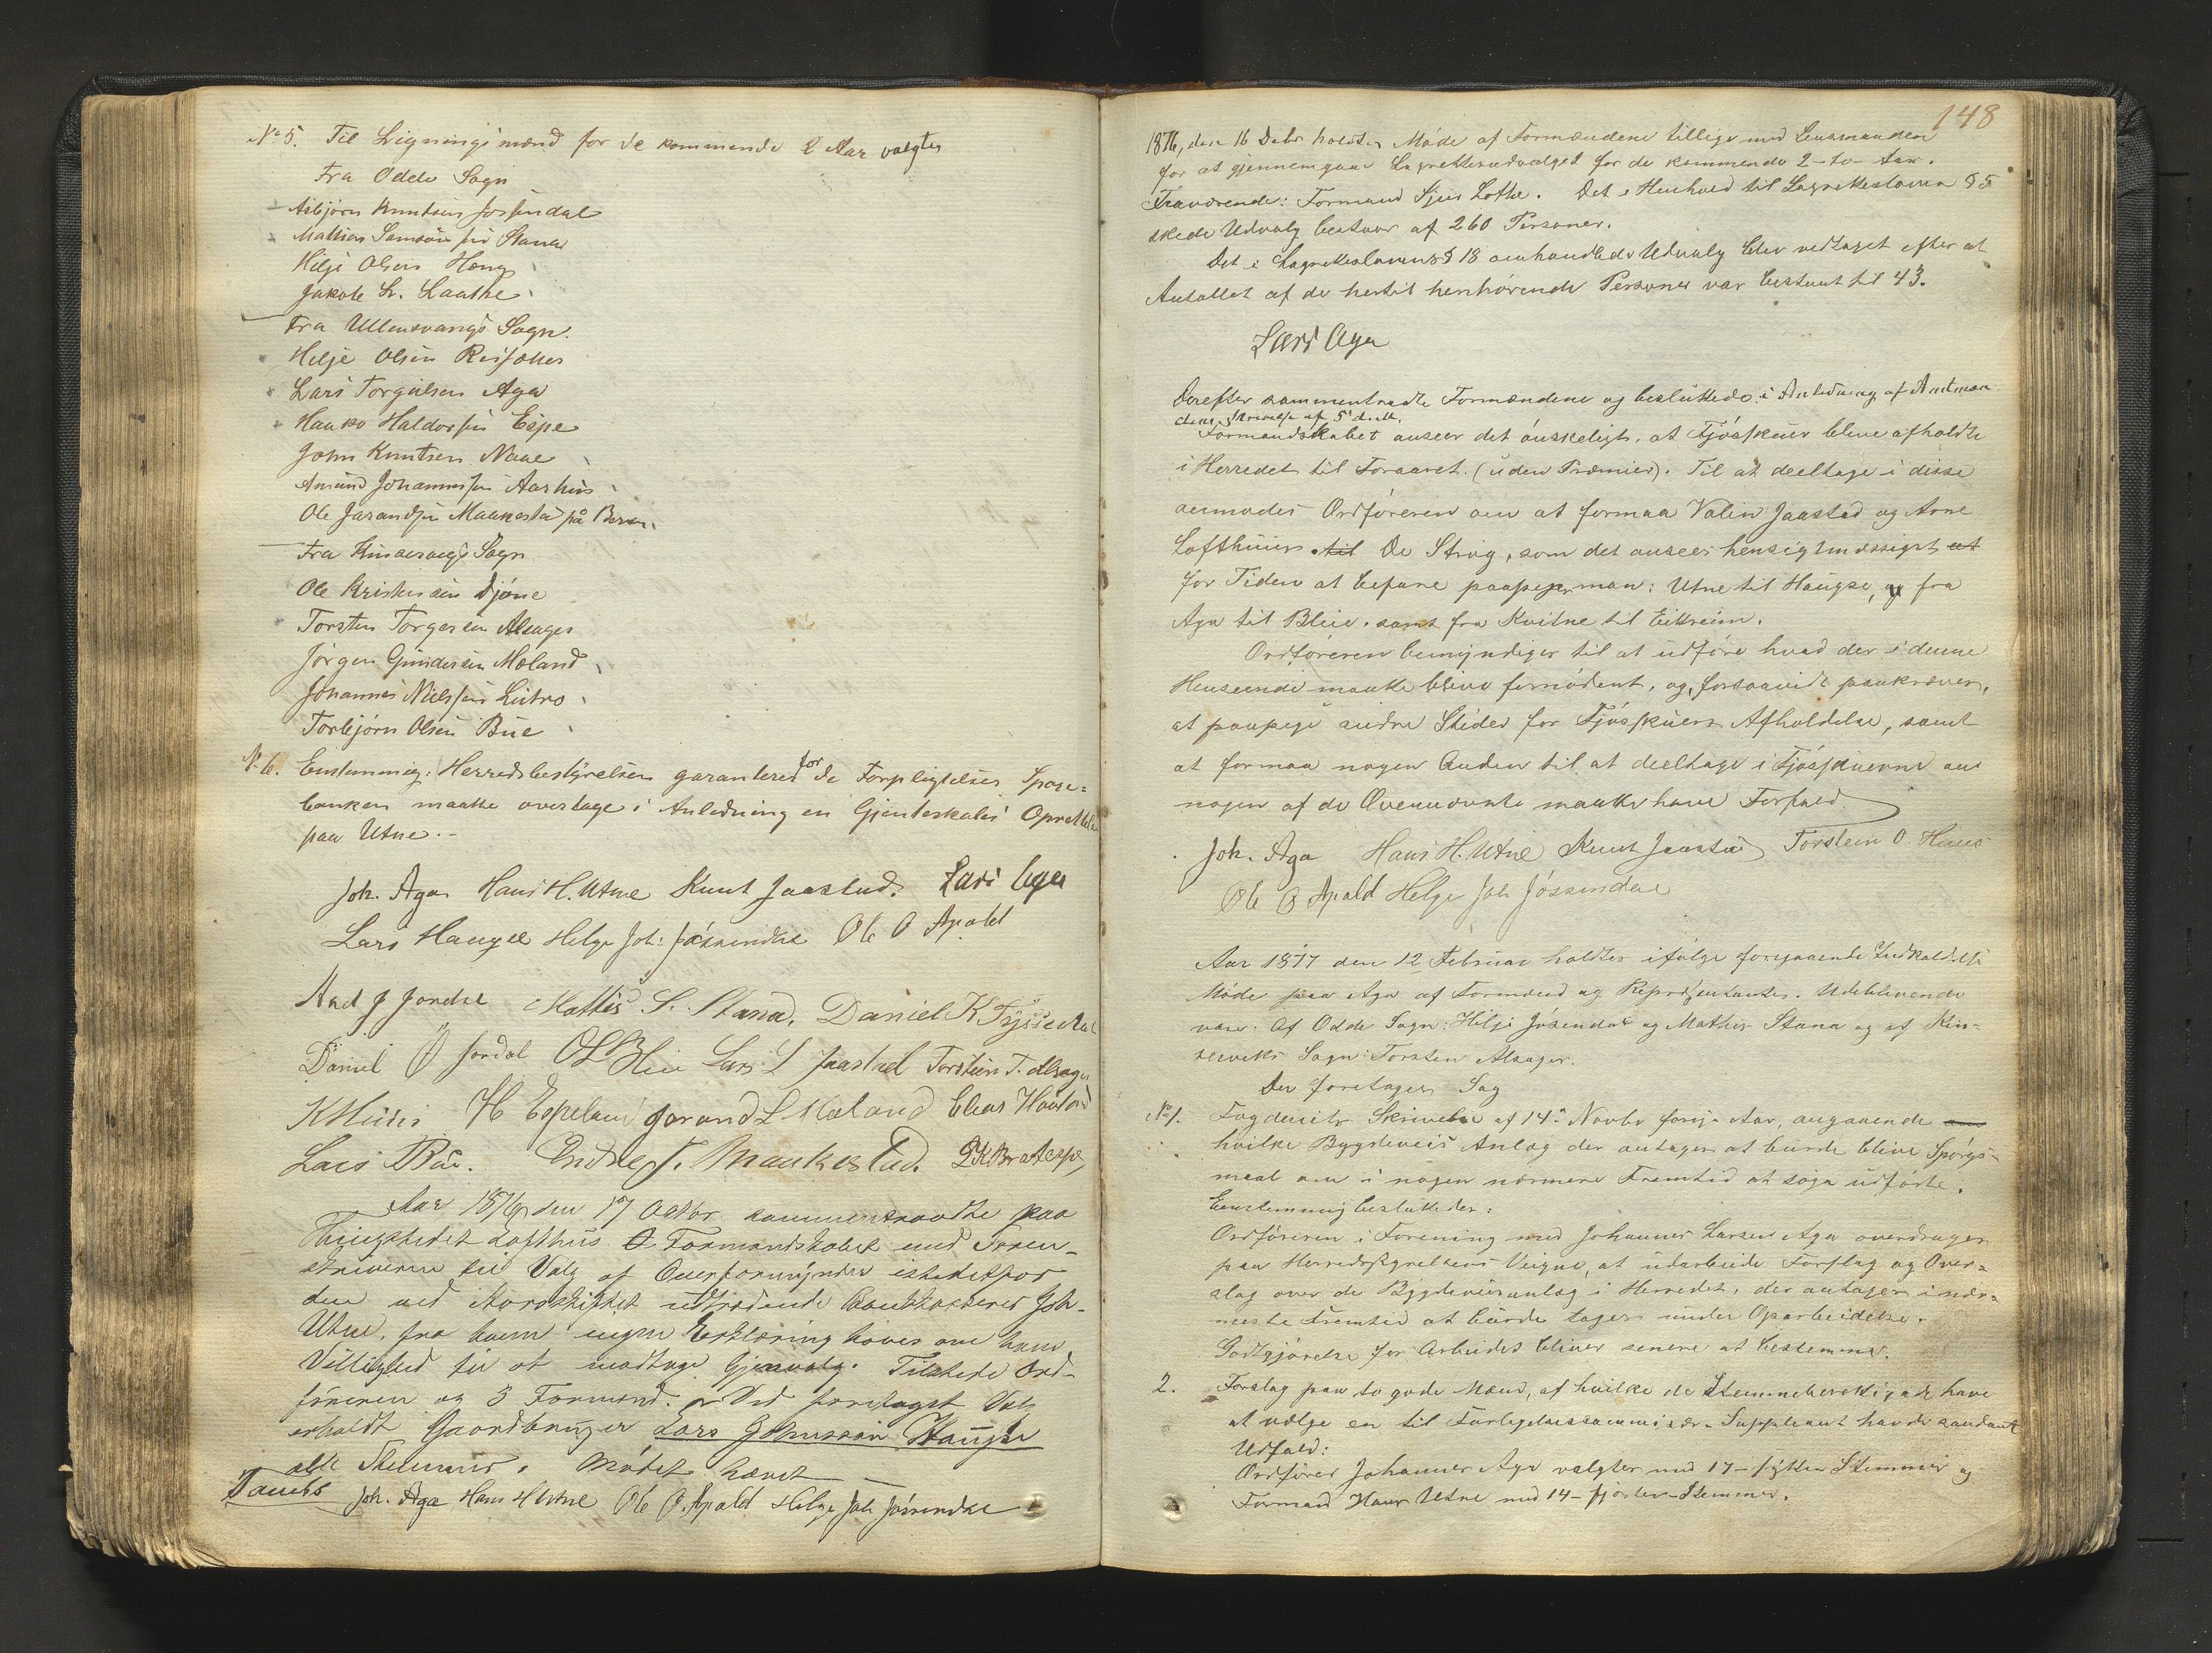 No 5. Til Ligningsmænd for de kommende 2 Aar valgtes
Fra Odde Sogn
Asbjørn Knutsen Jøsendal
Mathias Samson sen Stana
Helje Olsen
Jakob L. Laathe
Fra Ullensvangs Sogn.
Helje Olsen Reisæter
Lars Torgilsen Aga
Haako Haldorsen Espe
John Knutsen Naae
Amund Johannessen Aarhus
Ole Jarandsen Maakestad på
Fra Kinservigs Sogn
Ole Kristensen Djøne
Torsten Torgersen Alsager
Jørgen Gundersen Mæland
Johannes Nielssen Lutro
Torbjørn Olsen Bue
No 6. Enstemmig: Herredsbestyrelsen garanterer for de Forpligtelser Spare=
banken maatte overtage i Anledning en Gjenteskoles Oprettelse
paa Utne.-
Joh. Aga Hans H. Utne Knut Jaastad. Lars Aga
Lars Haugse Helge Joh: Jøssendal Ole O Apold
Aad J Jordal Mattis S. Stana. Daniel K Tyssedal
Daniel O Jordal O L Blie Lars L Jaastad Torstein T. Alsager
K Huus H Espeland Jorand L Mæland Elias Hovland
Lars Bue. Endre J. Maakestad. Bratespe
Aar 1876 den 17 Octbr sammentraadte paa
Thingstedet Lofthus Formandskabet med Soren-
skriveren til Valg af Overformynder istedetfor
den ved Aarsskiftet udtrædende Joh.
Utne, fra hvem ingen Erklæring haves om hans
Villighed til at modtage Gjenvalg. Tilstede Ord-
føreren og 3 Formænd. Ved foretaget Valg
erholdt Gaardbruger Lars Johnssøn Haugse
alle Stemmer. Mødet hævet
Joh. Aga Hans H Utne Ole O. Apold Helge Joh Jøssendal
148
1876, den 16 Decbr holdtes Møde af Formændene tillige med Lensmanden
for at gjennemgaae Lagretteudvalget for de kommende 2-to-Aar.
Fraværende: Formand Sjur Lothe. Det i Henhold til Lagretteloven § 5
skede Udvalg bestaar af 260 Personer.
Det i Lagrettelovens § 18 omhandlede Udvalg blev vedtaget efter at
Antallet af de hertil henhørende Personer var bestemt til 43.
Lars Aga
Derefter sammentraadte Formændene og besluttede i Anledning af Amtman
dens Skrivelse af 5te
Formandskabet anseer det ønskeligt, at Fjøsskuer blive afholdte
i Herredet til Foraaret. (uden Præmier). Til at deeltage i disse
anmodes Ordføreren om at formaa Jaastad og Arne
Lofthuus. til De Strøg, som det ansees hensigtmæssigst at
for Tiden at befare paapeger man: Utne til Haugse, og fra
Aga til Blie. samt fra Kvitne til Eitreim.
Ordføreren bemyndiges til at udføre hvad der i denne
Henseende maatte blive fornødent, og, forsaavidt paakræves,
at paapege andre Steder for Fjøsskuers Afholdelse, samt
at formaa nogen Anden til at deeltage i Fjøsskuerne om
nogen af de Ovennævnte maatte have Forfald
Joh. Aga Hans H. Utne Knut Jaastad Torstein O. Huus
Ole O Apold Helge Joh Jøssendal
Aar 1877 den 12 Februar holdtes ifølge foregaaende Indkaldelse
Møde paa Aga af Formænd og Repræsentanter. Udeblivende
vare: Af Odde Sogn: Helje Jøsendal og Mathis Stana og af Kin-
serviks Sogn: Torsten Alsager.
Der foretages Sag
No 1. Fogdens Skrivelse af 14de Novbr forige Aar, angaaende om
hvilke Bygdeveis Anlæg der antages at burde blive Spørgs-
maal om i nogen nærmere Fremtid at søge udførte.
Eenstemmig besluttedes:
Ordføreren i Forening med Johannes Larsen Aga overdrages
paa Herredsstyrelsens Vegne, at udarbeide Forslag og Over-
slag over de Bygdeveisanlæg i Herredet, der antages i nær-
meste Fremtid at burde tages under Oparbeidelse.
Godtgjørelse for Arbeidet bliver senere at bestemme.
2. Forslag paa to gode Mænd, af hvilke de Stemmeberettigede have
at vælge en til Forligelseskommissær-Suppleant havde saadant
Udfald:
Ordfører Johannes Aga valgtes med 17-sytten Stemmer og
Formand Hans Utne med 14-fjorten-Stemmer.